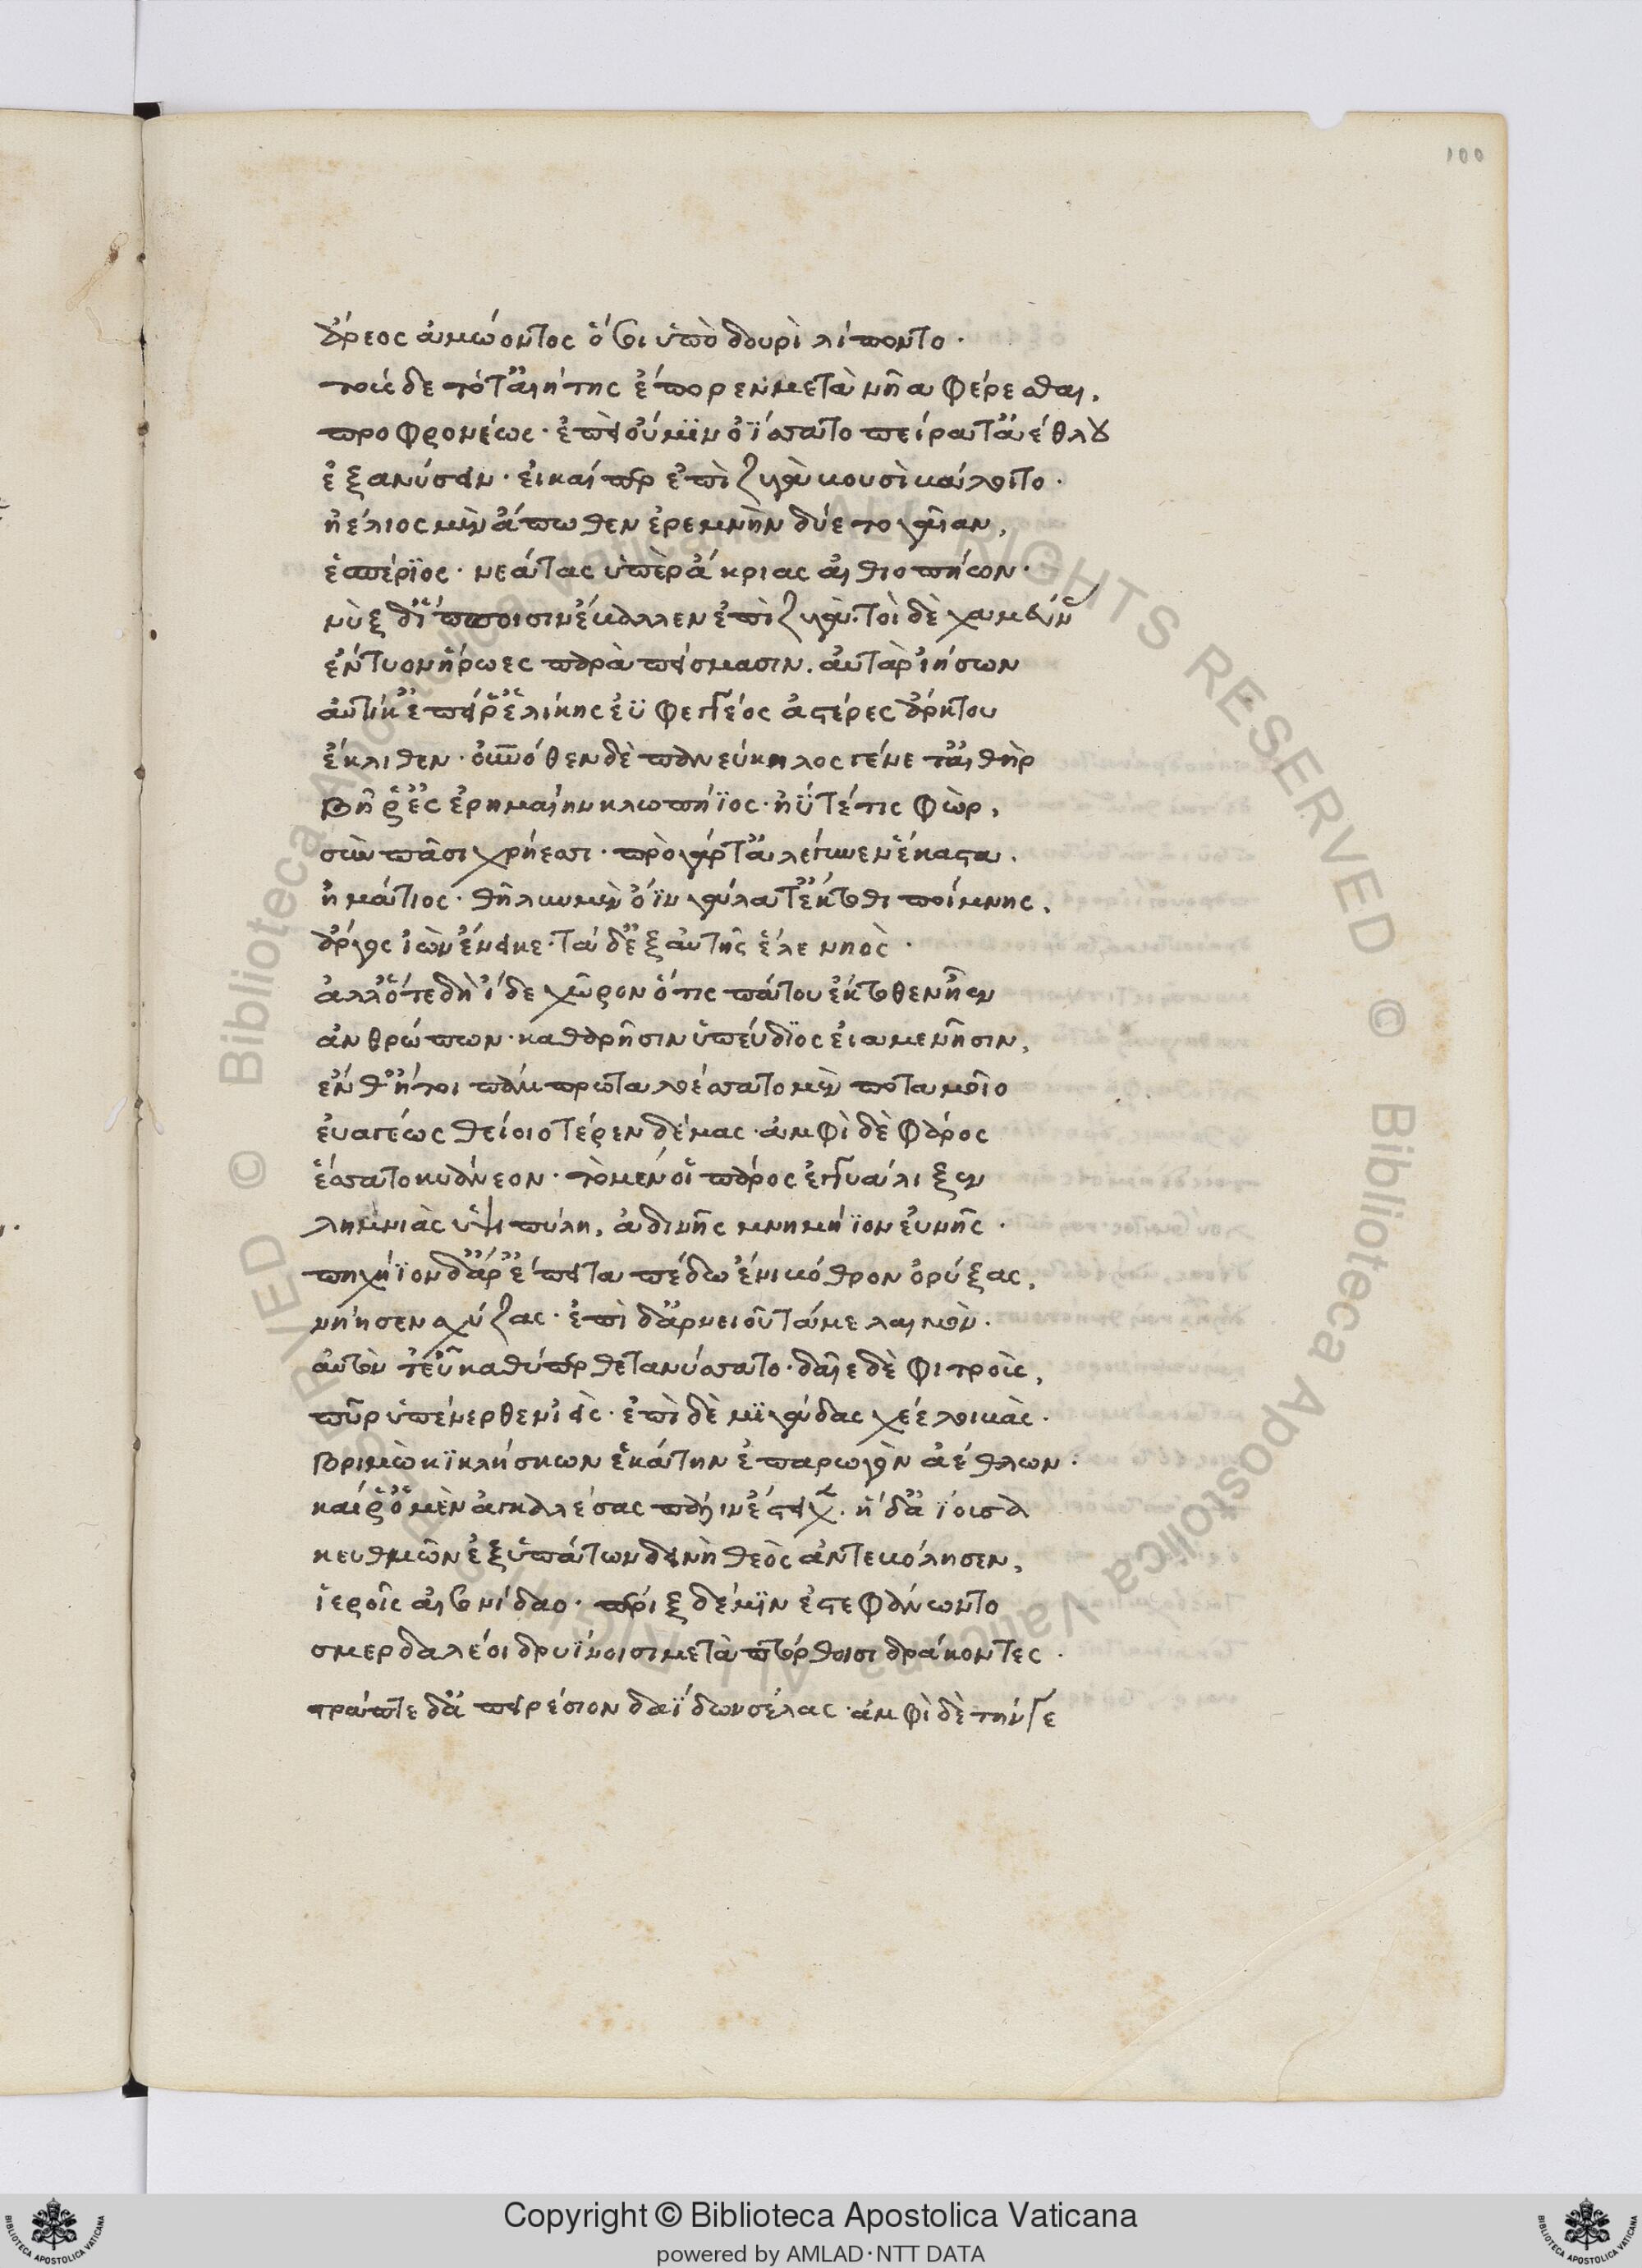 ἄρεος ἀμώοντος ὅσοι ὑπὸ δουρὶ λίποντο·
τοὺς δε τότ' ἀιήτης ἔπορεν μετὰ νῆα φέρεσθαι,
προφρονέως· ἐπεὶ οὔ μϊν ὀΐσσατο πείρατ' ἀέθλου
ἐξανύσειν· εἰ καί περ ἐπὶ ζυγὰ βουσὶ βάλοιτο·
ἠέλιος μὲν ἄπωθεν ἐρεμνὴν δύετο γαῖαν,
ἑσπέριος· νεάτας ὑπὲρ ἄκριας αἰθιοπήων·
νὺξ δ' ἵπποισιν ἔβαλλεν ἐπὶ ζυγά· τοὶ δὲ χαμεύνας
ἔντυον ἥρωες παρὰ πείσμασιν. αὐτὰρ ἰήσων
αὐτίκ' ἐπεί ῥ' ἑλίκης ἐϋφεγγέος ἀστέρες ἄρκτου
ἔκλιθεν· οὐρανόθεν δὲ πανεύκηλος γένετ' αἰθὴρ
βῆ ῥ' ἐς ἐρημαίην κλωπήϊος· ἠΰτέ τις φὼρ,
σὺν πᾶσι χρήεσσι· πρὸ γάρ τ' ἀλέγυνεν ἕκαστα.
ἠμάτιος· θῆλυν μὲν ὄϊν γάλα τ' ἔκτοθι ποίμνης,
ἄργος ἰὼν ἔνεικε· τά δ' ἐξ αὐτῆς ἕλε νηὸς·
ἀλλ' ὅτε δὴ ἴδε χῶρον ὅτις πάτου ἔκτοθεν ἦεν
ἀνθρώπων· καθαρῆσιν ὑπεύδϊος εἰαμενῆσιν,
ἔνθ' ἤτοι πάμπρωτα λοέσσατο μὲν ποταμοῖο
ἐυαγέως θείοιο τέρεν δέμας· ἀμφὶ δὲ φᾶρος
ἕσσατο κυάνεον· τὸ μέν οἱ πάρος ἐγγυάλιξεν
λημνιὰς ὑψιπύλη, ἀδινῆς μνημήϊον εὐνῆς·
πηχήϊον δ' ἄρ' ἔπειτα πέδω ἔνι βόθρον ὀρύξας,
νήησεν σχίζας· ἐπὶ δ' ἀρνειοῦ τάμε λαιμὸν·
αὐτὸν τ' εὖ καθύπερθε τανύσσατο· δαῖε δὲ φιτροὺς,
πῦρ ὑπένερθεν ἱεὶς· ἐπὶ δὲ μϊγάδας χέε λοιβὰς·
βριμὼ κϊκλήσκων ἑκάτην ἐπαρωγὸν ἀέθλων·
καί ῥ' ὁ μὲν ἀγκαλέσας πάλιν ἔστειχε· ἡ δ' ἀΐουσα
κευθμῶν ἐξ ὑπάτων δεινὴ θεὸς ἀντεβόλησεν,
ἱεροῖς αἰσονίδαο· πέριξ δέ μϊν ἐστεφάνωντο
σμερδαλέοι δρυΐνοισι μετὰ πτόρθοισι δράκοντες·
στράπτε δ' ἀπειρέσιον δαΐδων σέλας· ἀμφὶ δὲ τήνγε
100
Copyright © Biblioteca Apostolica Vaticana
powered by AMLAD·NTT DATA
© Biblioteca Apostolica Vaticana ALL RIGHTS RESERVED © Biblioteca Apostolica Vaticana ALL RIGHTS RESERVED